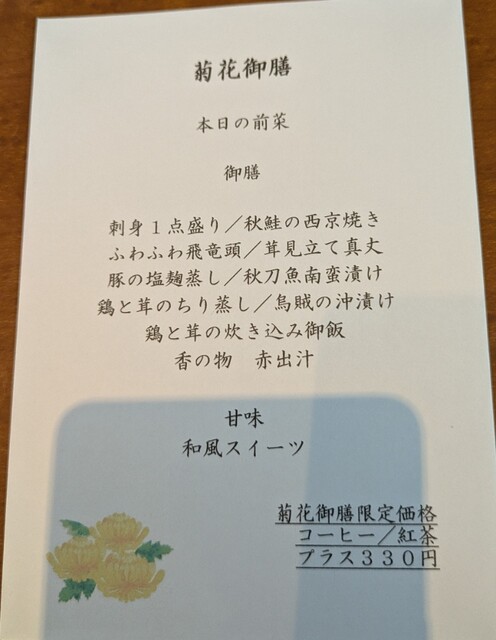 菊花御膳
本日の前菜
御膳
刺身１点盛り／秋鮭の西京焼き
ふわふわ飛竜頭／茸見立て真丈
豚の塩麹蒸し／秋刀魚南蛮漬け
鶏と茸のちり蒸し／烏賊の沖漬け
鶏と茸の炊き込み御飯
香の物　赤出汁
甘味
和風スイーツ
菊花御膳限定価格
コーヒー／紅茶
プラス３３０円